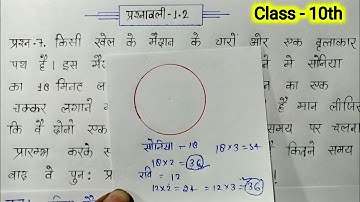 Class - 10th
प्रश्नावली-1.2
प्रश्न-7. किसी खेल के मैदान के चारों ओर एक वृत्ताकार
पथ है। इस मै नने मे सोनिया
का 18 मिनट ल न का एक
चक्कर लगाने है मान लीजिए
कि वे दोनो एक समय पर चलना
प्रारम्भ करके स है कितने समय
बाद वे पुनः प्र
सोनिया - 18 18×3=54
18×2=36
रवि = 12
12×2=24 = 12×3=36